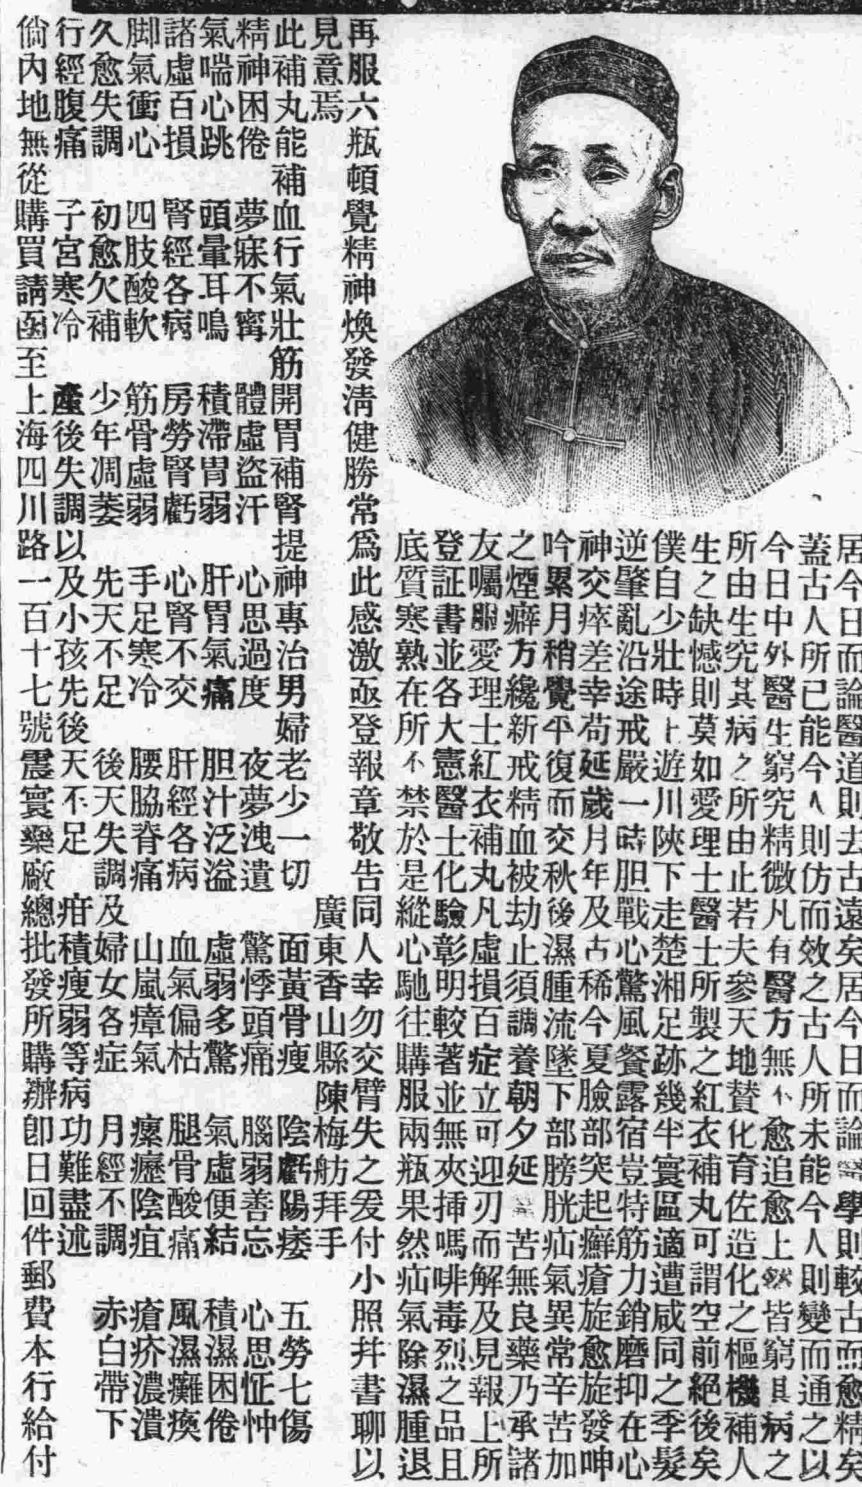 居今日而論醫道則去古遠矣居今日而論醫學則較古而愈精矣
蓋古人所已能今人則仿而效之古人所未能今人則變而通之以
今日中外醫生窮究精微凡有醫方無不愈追愈上然皆窮其病之
所由生究其病之所由止若夫參天地贊化育佐造化之樞機補人
生之缺憾則莫如愛理士醫士所製之紅衣補丸可謂空前絕後矣
僕自少壯時上遊川陝下走楚湘足跡幾半寰區適遭咸同之季髮
逆肇亂沿途戒嚴一時胆戰心驚風餐露宿豈特筋力銷磨抑在心
神交瘁差幸苟延歲月年及古稀今夏臉部突起癬瘡旋愈旋發呻
吟累月稍覺平復而交秋後濕腫流墜下部膀胱疝氣異常辛苦加
之煙癖方纔新戒精血被劫止須調養朝夕延醫苦無良藥乃承諸
友囑服愛理士紅衣補丸凡虛損百症立可迎刃而解及見報上所
登証書並各大憲醫士化驗彰明較著並無夾挿嗎啡毒烈之品且
底質寒熟在所不禁於是縱心馳往購服兩瓶果然疝氣除濕腫退
再服六瓶頓覺精神煥發清健勝常爲此感激亟登報章敬告同人幸勿交臂失之爰付小照幷書聊以
見意焉 廣東香山縣陳梅舫拜手
此補丸能補血行氣壯筋開胃補腎提神專治男婦老少一切 面黃骨瘦 陰虧陽痿 五勞七傷
精神困倦 夢寐不寗 體虛盜汗 心思過度 夜夢洩遺 驚悸頭痛 腦弱善忘 心思怔忡
氣喘心跳 頭暈耳鳴 積滯胃弱 肝胃氣痛 胆汁泛溢 虛弱多驚 氣虛便結 積濕困倦
諸虛百損 腎經各病 房勞腎虧 心腎不交 肝經各病 血氣偏枯 腿骨酸痛 風濕癱瘓
脚氣衝心 四肢酸軟 筋骨虛弱 手足寒冷 腰脇脊痛 山嵐瘴氣 瘰癧陰疽 瘡疥濃潰
久愈失調 初愈欠補 少年凋萎 先天不足 後天失調及婦女各症 月經不調 赤白帶下
行經腹痛 子宮寒冷 產後失調以及小孩先後天不足 疳積瘦弱等病功難盡述
倘內地無從購買請函至上海四川路一百十七號震寰藥廠總批發所購辦卽日回件郵費本行給付